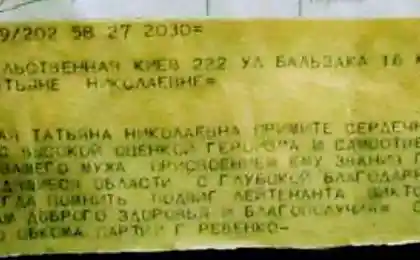 9/202 58 27 2030=
ЛЬСТВЕННАЯ КИЕВ 222 УЛ БАЛЬЗАКА 16 К
ТЬЯНЕ НИКОЛАЕВНЕ=
АЯ ТАТЬЯНА НИКОЛАЕВНА ПРИМИТЕ СЕРДЕЧН
С ВЫСОКОЙ ОЦЕНКОЙ ГЕРОИЗМА И САМООТВЕ
ВАШЕГО МУЖА ПРИСВОЕНИЕМ ЕМУ ЗВАНИЯ
ДЯЩИЕСЯ ОБЛАСТИ С ГЛУБОКОЙ БЛАГОДАРН
ГДА ПОМНИТЬ ПОДВИГ ЛЕЙТЕНАНТА ВИКТО
АМ ДОБРОГО ЗДОРОВЬЯ И БЛАГОПОЛУЧИЯ= С
О ОБКОМА ПАРТИИ Г РЕВЕНКО-